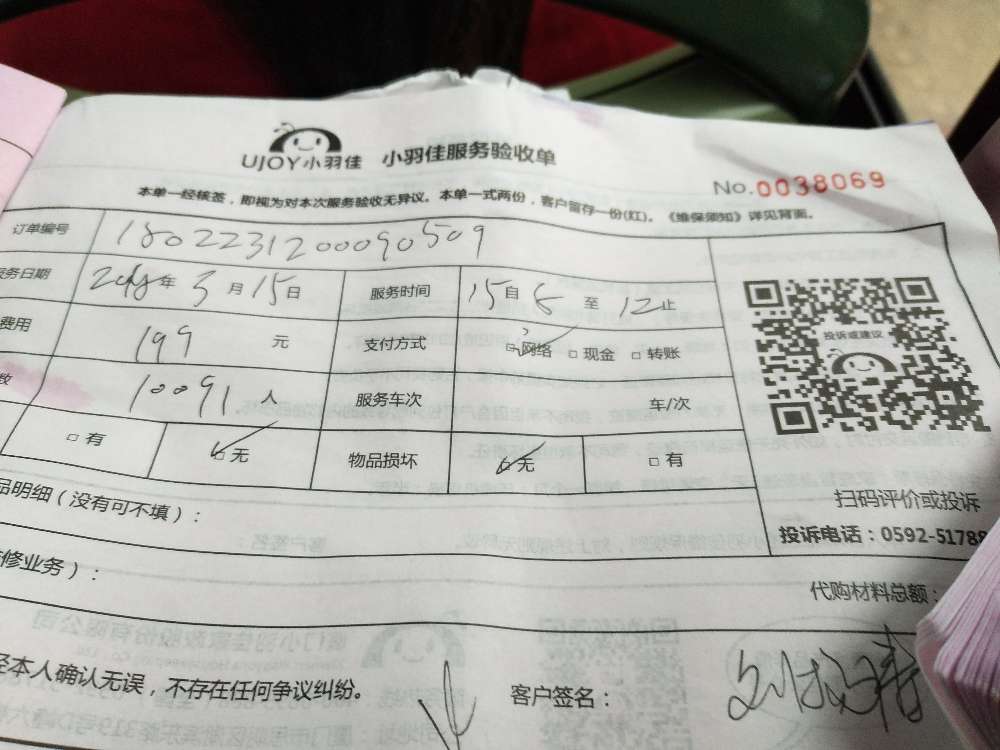 UJOY小羽佳 小羽佳服务验收单
No.0038069
本单一经核签，即视为对本次服务验收无异议。本单一式两份，客户留存一份(红)。《维保须知》详见背面。
订单编号 1802231200090509
务日期 2018年3月15日 服务时间 15自 8 至 12止
费用 199 元 支付方式 □网络 □现金 □转账
数 10091人 服务车次 车/次
□有 □无 物品损坏 □无 □有
投诉或建议
扫码评价或投诉
投诉电话：0592-51788
品明细（没有可不填）：
修业务）：
代购材料总额：
经本人确认无误，不存在任何争议纠纷。
客户签名：